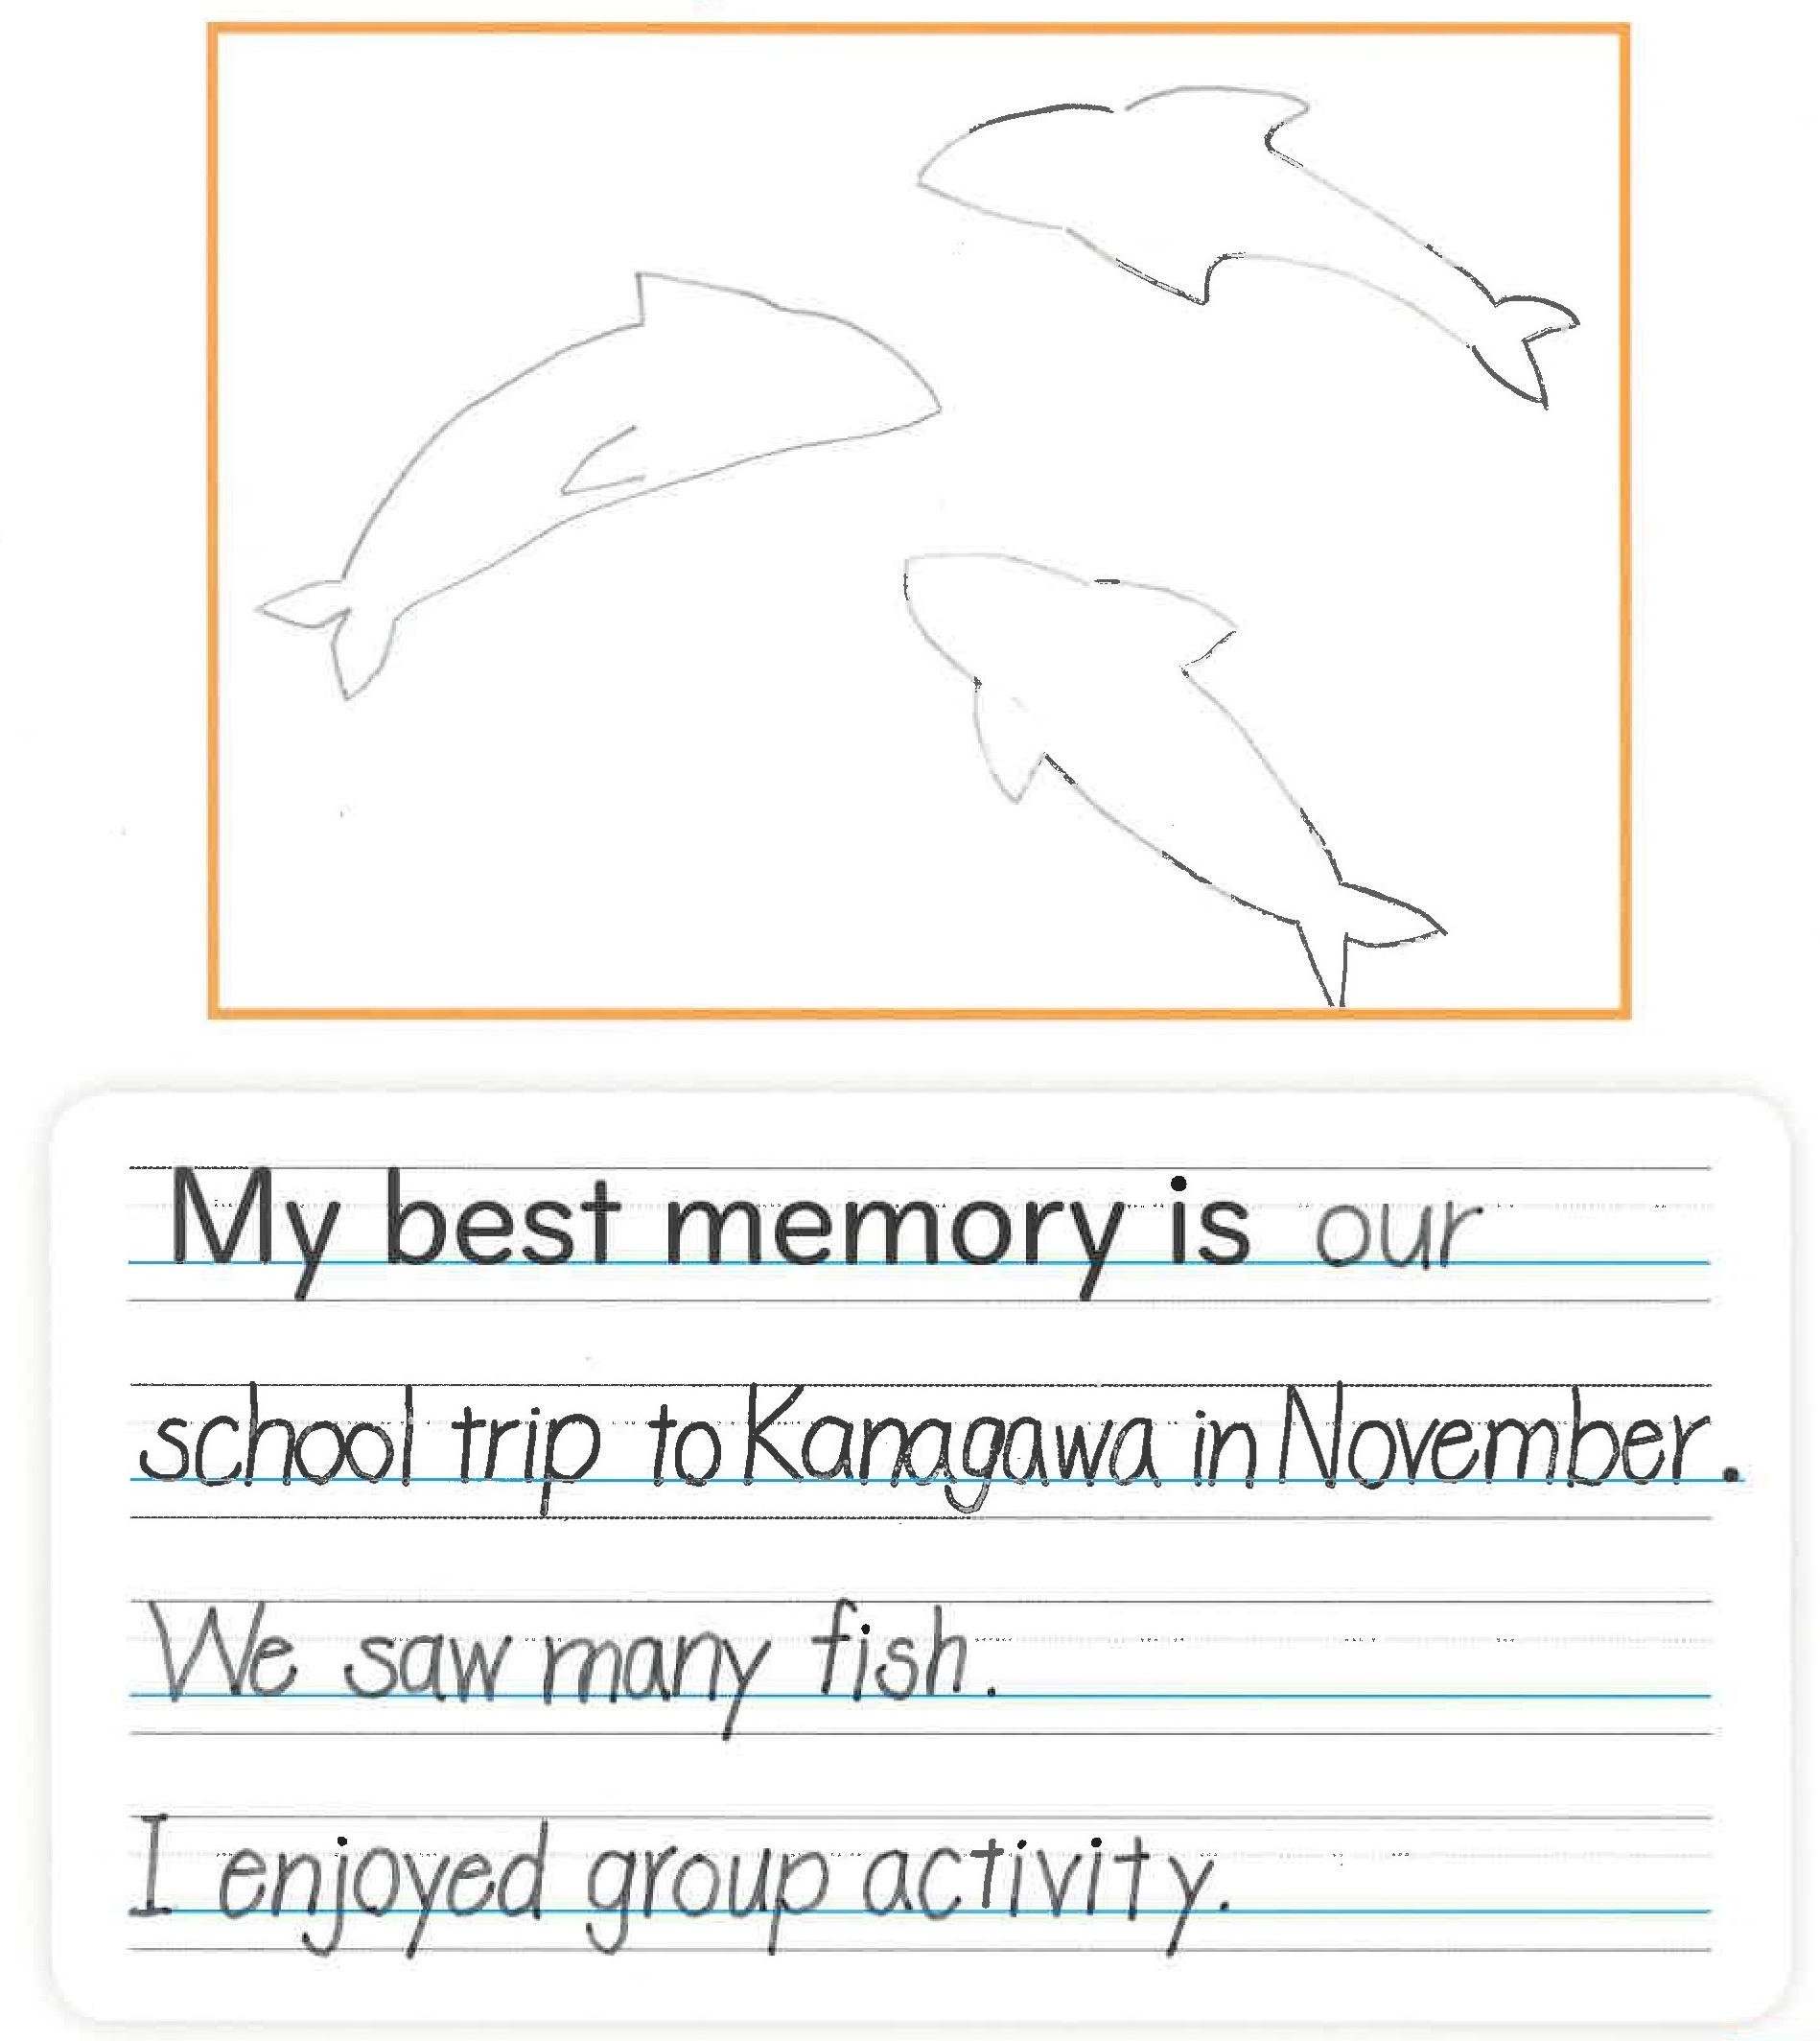 My best memory is our
school trip to Kanagawa in November.
We saw many fish.
I enjoyed group activity.